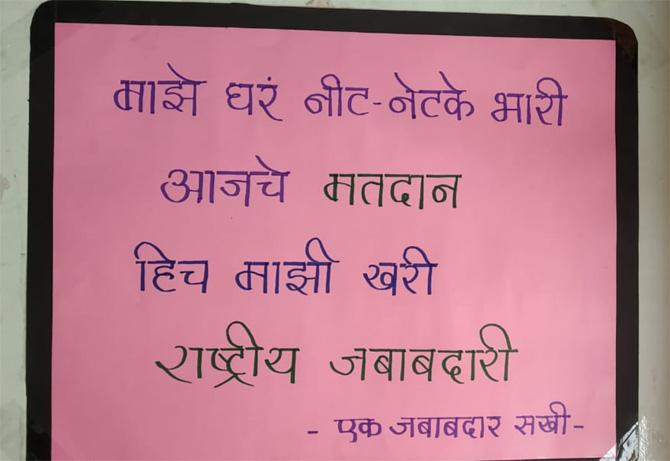 माझे घरं नीट-नेटके भारी
आजचे मतदान
हिच माझी खरी
राष्ट्रीय जबाबदारी
- एक जबाबदार सखी-